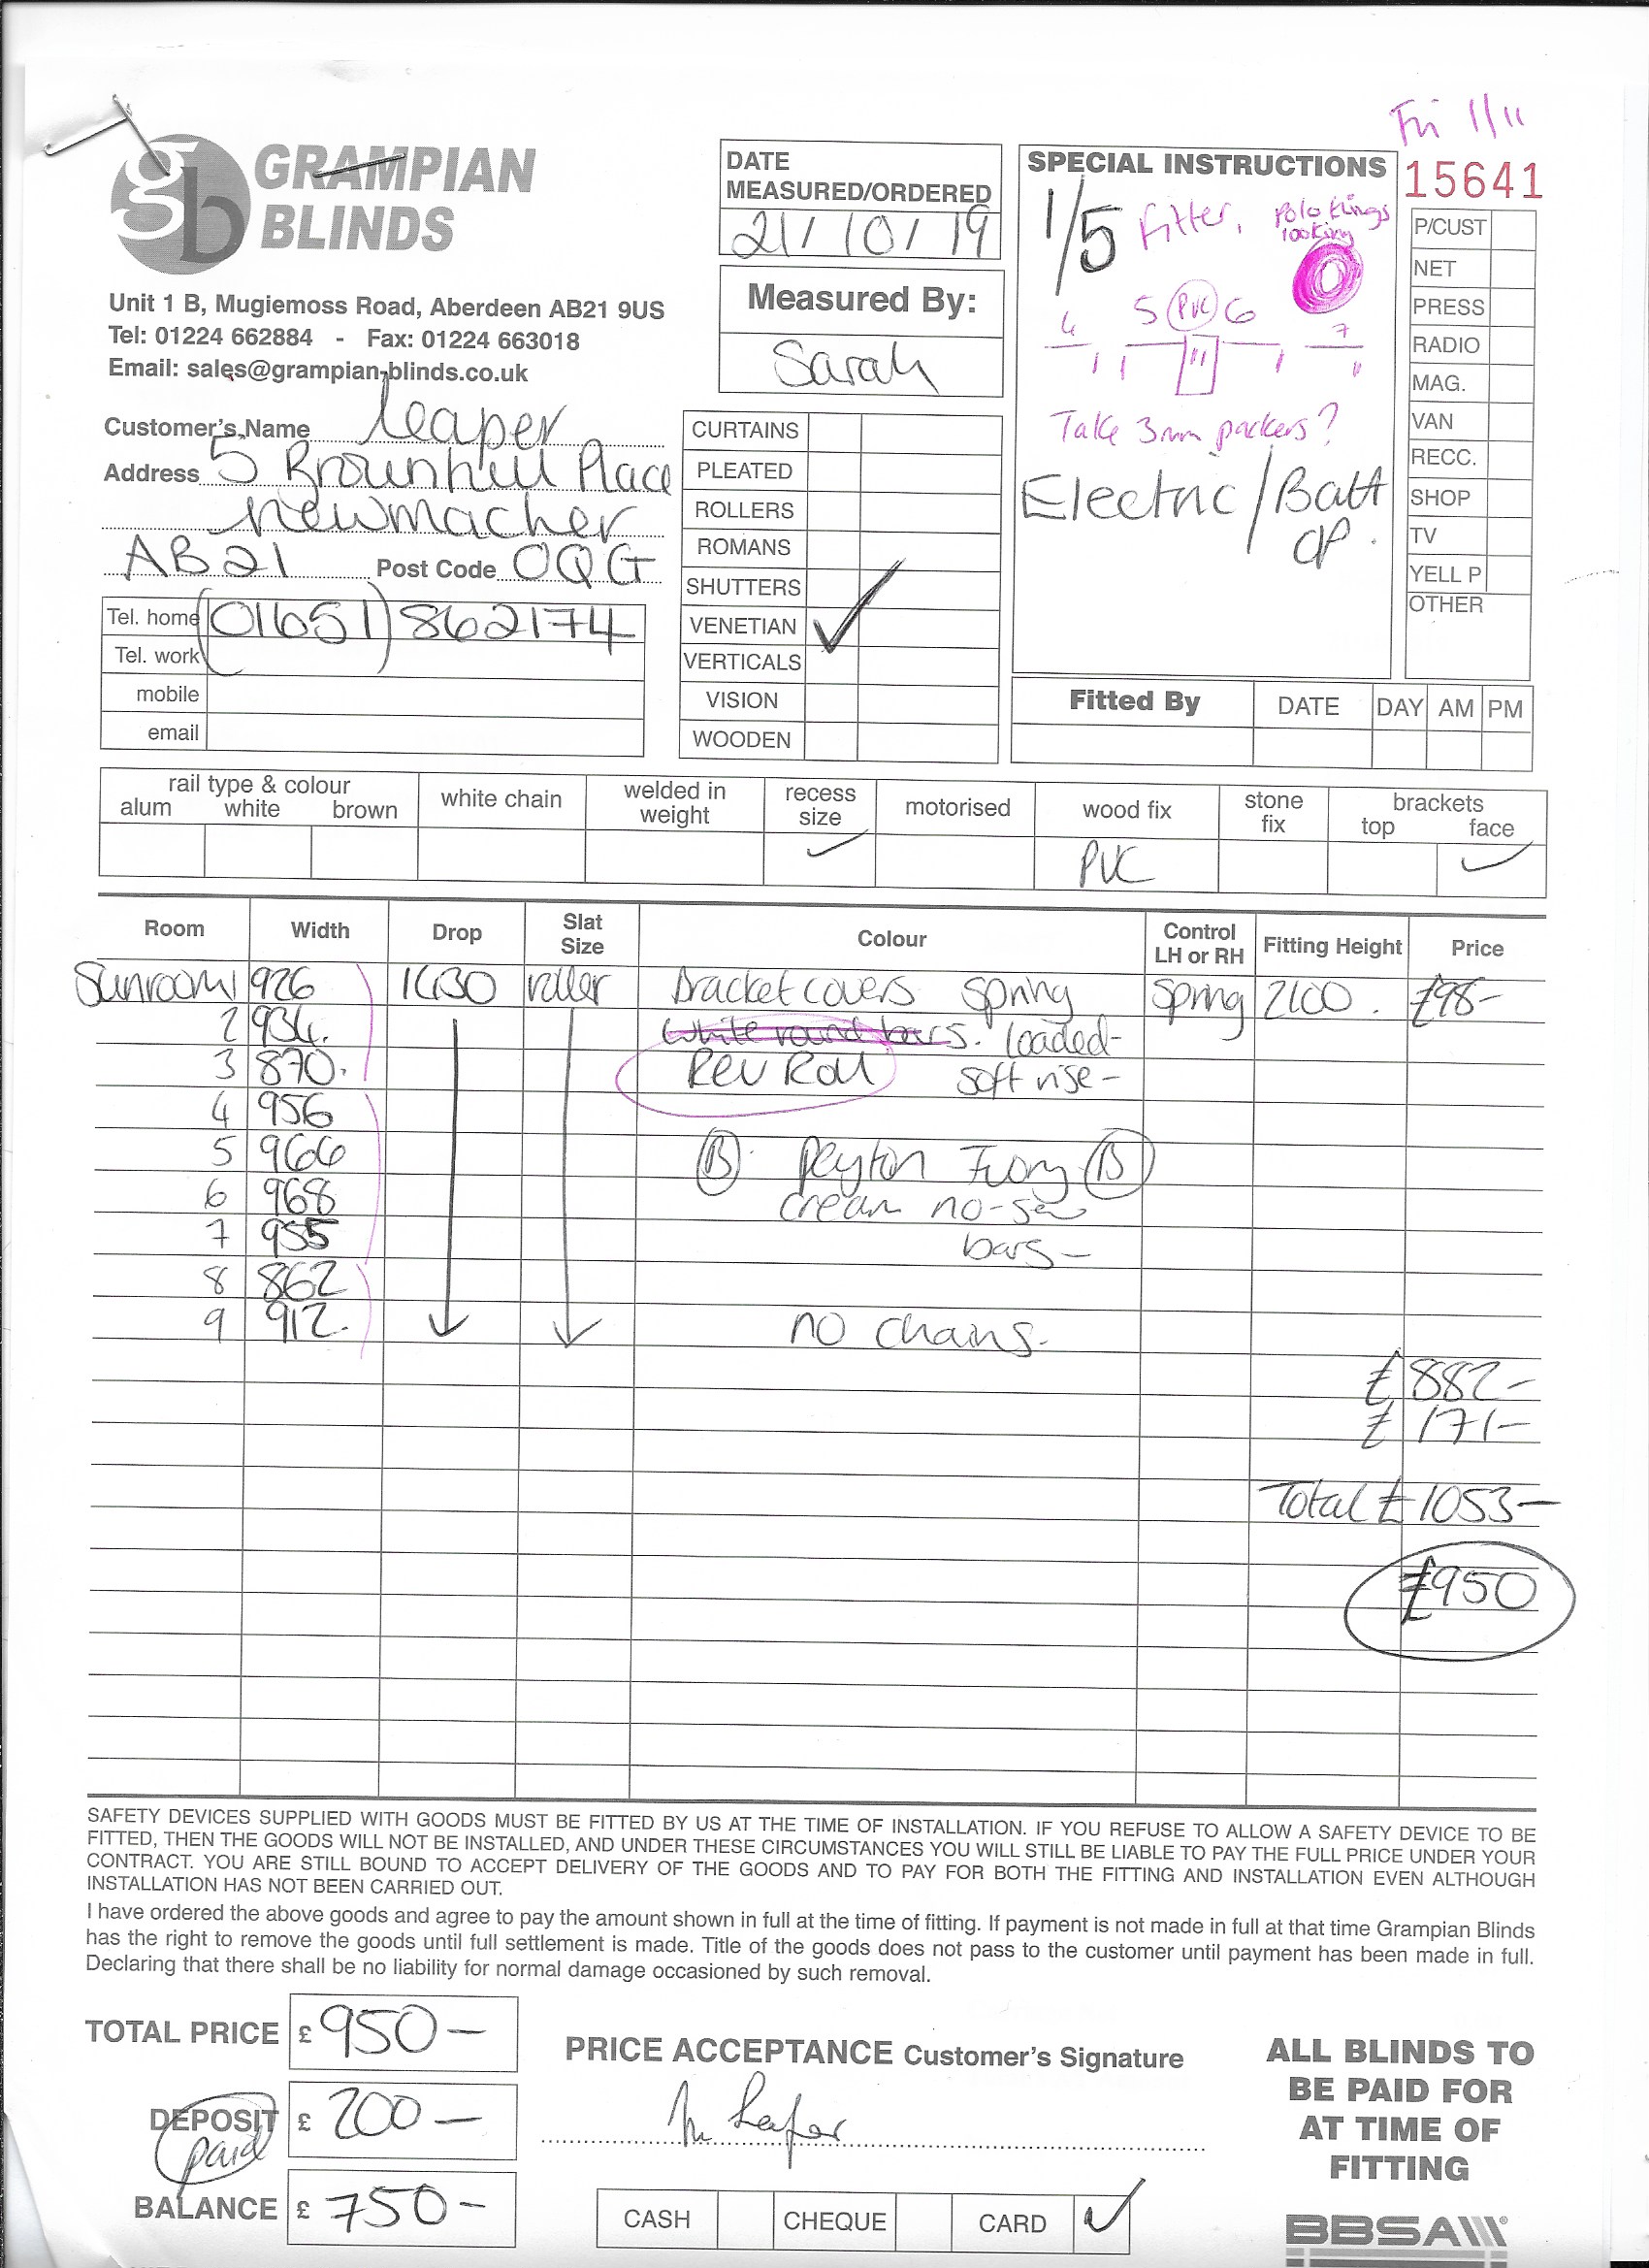 Fri 1/11
GRAMPIAN
BLINDS
Unit 1 B, Mugiemoss Road, Aberdeen AB21 9US
Tel: 01224 662884 - Fax: 01224 663018
Email: sales@grampian-blinds.co.uk
Customer's Name Leaper
Address 5 Brownhill Place
Newmacher
AB21 Post Code 0QG
Tel. home (01651) 862174
Tel. work
mobile
email
DATE
MEASURED/ORDERED
21/10/19
Measured By:
Sarah
CURTAINS
PLEATED
ROLLERS
ROMANS
SHUTTERS
VENETIAN ✓
VERTICALS
VISION
WOODEN
SPECIAL INSTRUCTIONS
1/5 Fitter,
looking
5 PVC 6
7
Take 3mm packers?
Electric/Batt
OP.
15641
P/CUST
NET
PRESS
RADIO
MAG.
VAN
RECC.
SHOP
TV
YELL P
OTHER
Fitted By DATE DAY AM PM
rail type & colour
alum white brown
white chain
welded in
weight
recess
size ✓
motorised
wood fix
PVC
stone
fix
brackets
top face ✓
Room Width Drop Slat Size Colour Control LH or RH Fitting Height Price
Sunroom 1 926 1430 roller Bracket covers spring spring 2100. £98-
2 934. white round bars. loaded-
3 870. Rev Roll soft rise-
4 956
5 966 B Peyton Ivory B
6 968 cream no-sew
7 955 bars-
8 862
9 912. no chains.
£882-
£171-
Total £1053-
£950
SAFETY DEVICES SUPPLIED WITH GOODS MUST BE FITTED BY US AT THE TIME OF INSTALLATION. IF YOU REFUSE TO ALLOW A SAFETY DEVICE TO BE
FITTED, THEN THE GOODS WILL NOT BE INSTALLED, AND UNDER THESE CIRCUMSTANCES YOU WILL STILL BE LIABLE TO PAY THE FULL PRICE UNDER YOUR
CONTRACT. YOU ARE STILL BOUND TO ACCEPT DELIVERY OF THE GOODS AND TO PAY FOR BOTH THE FITTING AND INSTALLATION EVEN ALTHOUGH
INSTALLATION HAS NOT BEEN CARRIED OUT.
I have ordered the above goods and agree to pay the amount shown in full at the time of fitting. If payment is not made in full at that time Grampian Blinds
has the right to remove the goods until full settlement is made. Title of the goods does not pass to the customer until payment has been made in full.
Declaring that there shall be no liability for normal damage occasioned by such removal.
TOTAL PRICE £ 950-
DEPOSIT £ 200-
paid
BALANCE £ 750-
PRICE ACCEPTANCE Customer's Signature
M Leaper
CASH CHEQUE CARD ✓
ALL BLINDS TO
BE PAID FOR
AT TIME OF
FITTING
BBSA